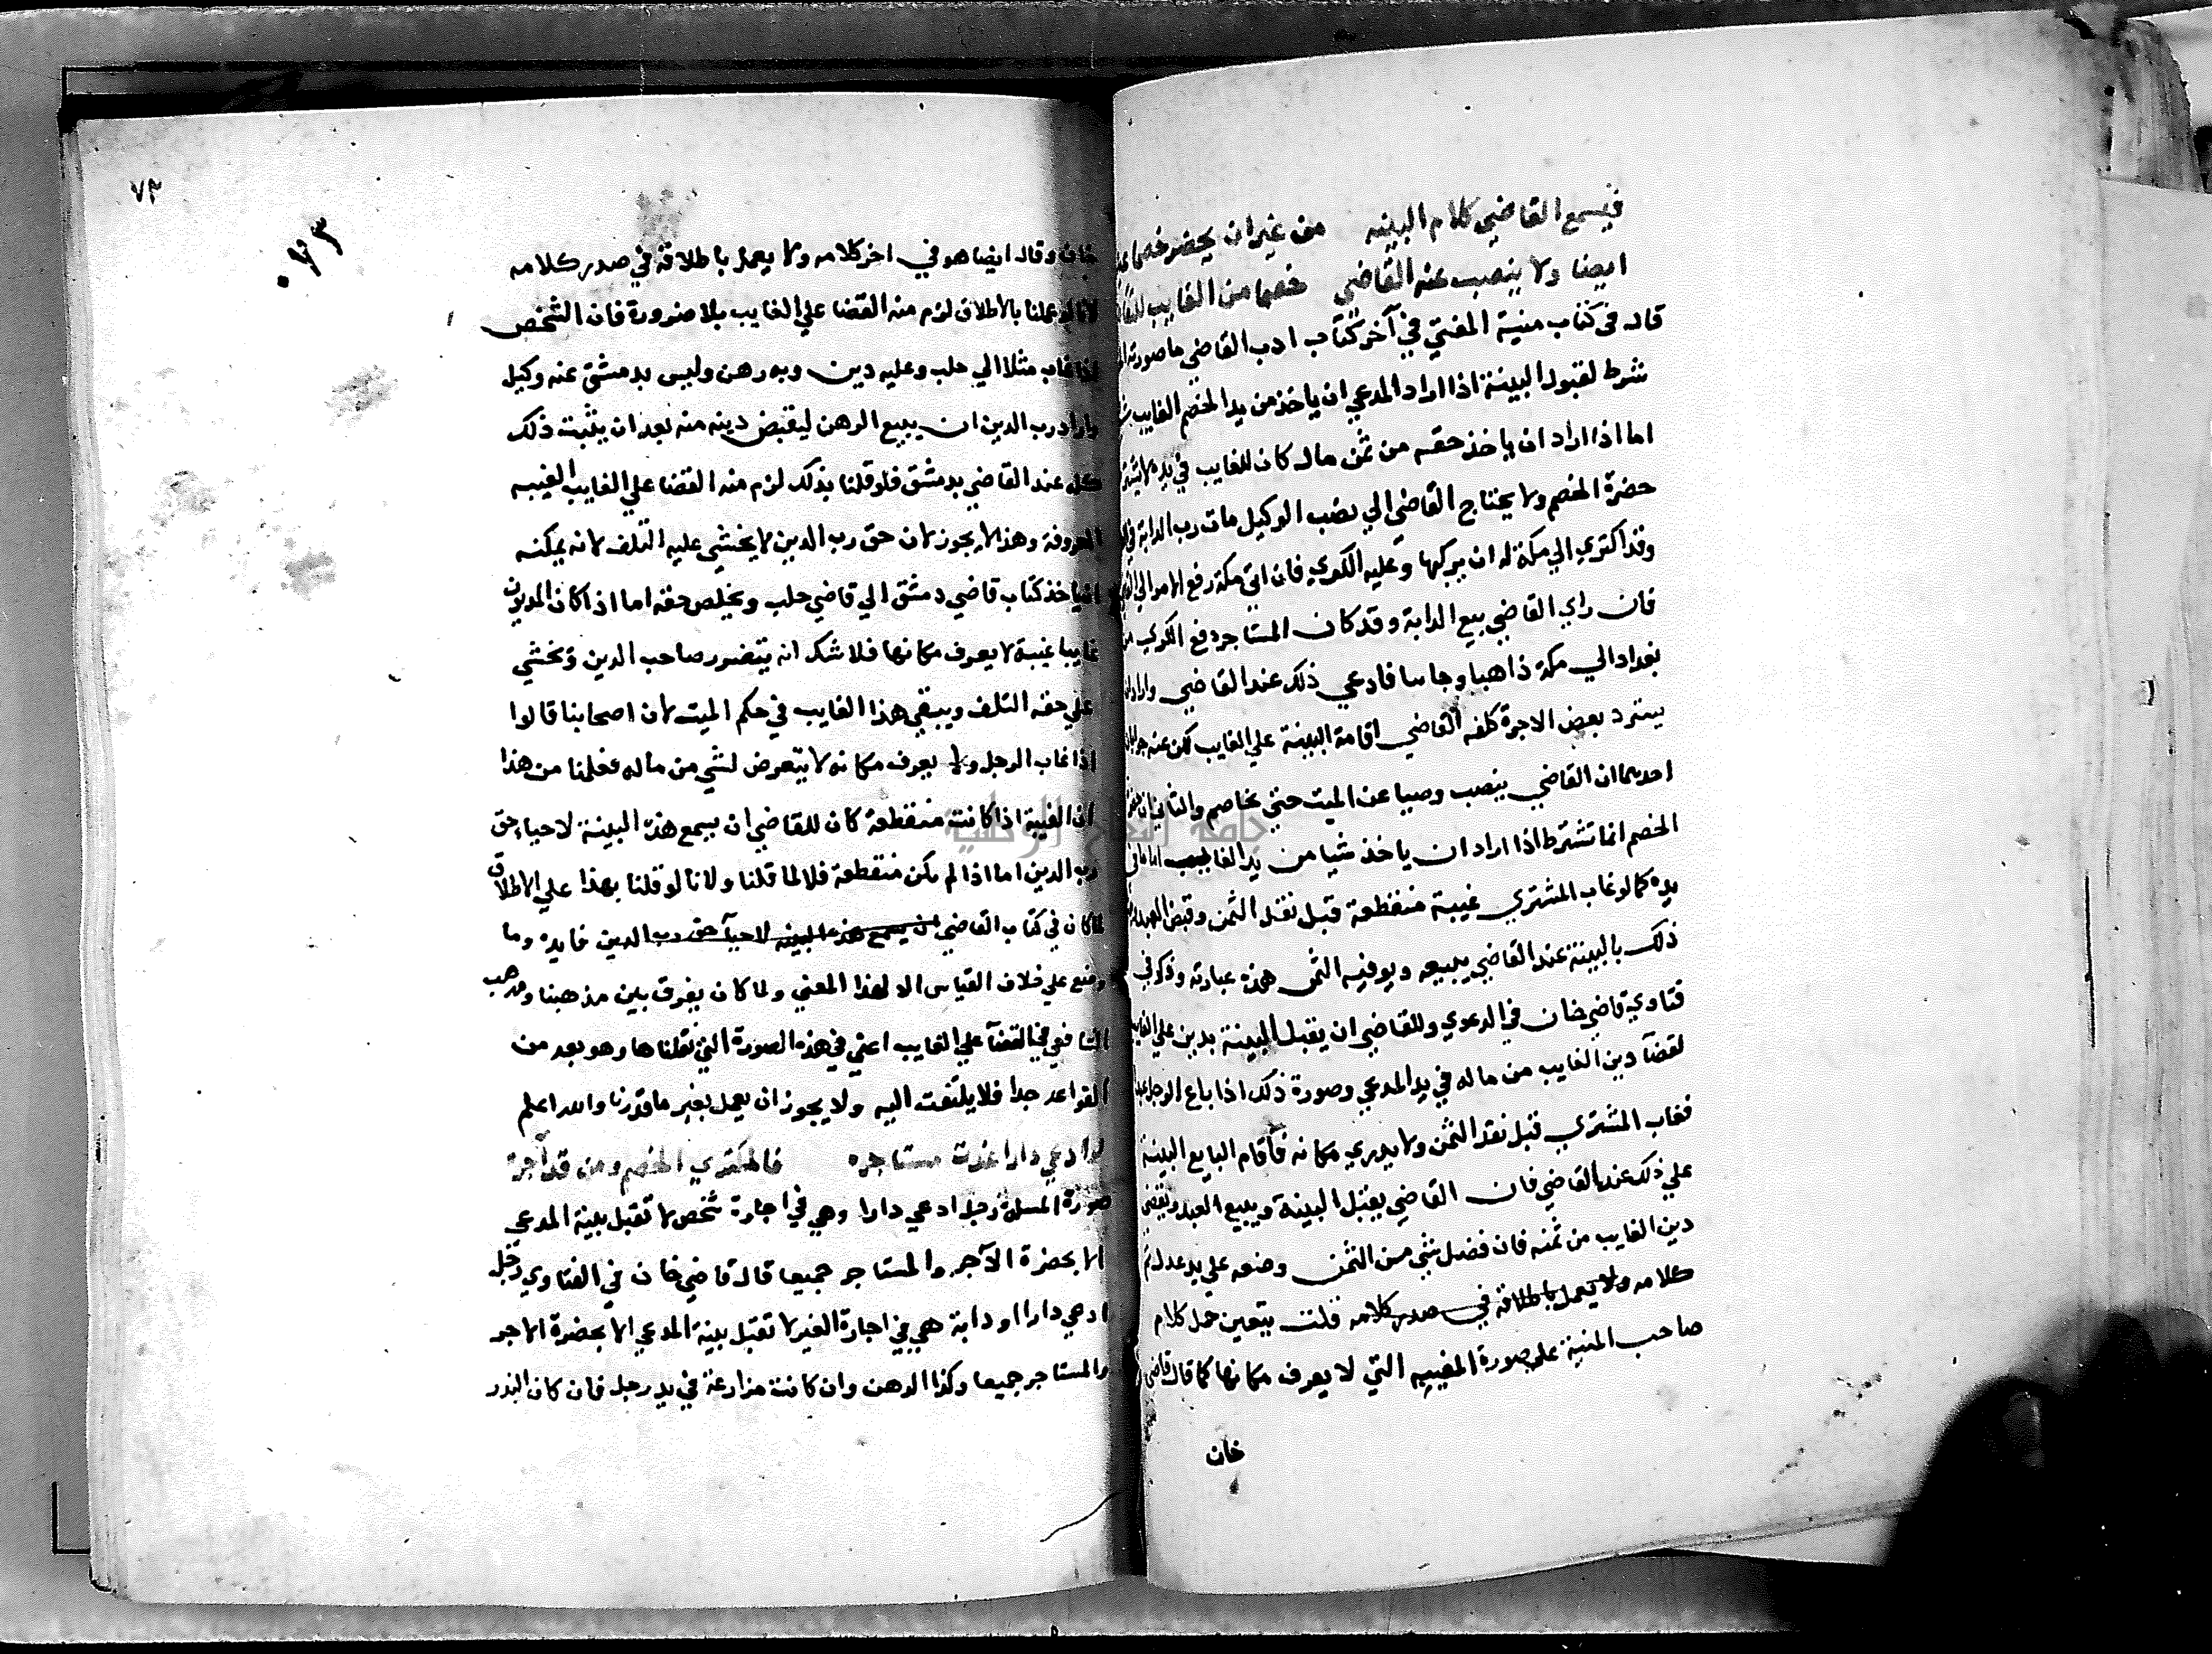 فيسمع القاضي كلام البينه من غير ان يحضر خصما عنه
ايضا ولا ينصب عنه القاضي خصما من الغايب للقاضي
قال في كتاب منية المفتي في آخر كتاب ادب القاضي ما صورته
شرط لقبول البينة اذا اراد المدعي ان ياخذ من يد الخصم الغايب
اما اذا اراد ان ياخذ حقه من ثمن مال كان للغايب في يده لا يشترط
حضرة الخصم ولا يحتاج القاضي الي نصب الوكيل مات رب الدابة في
وقد اكتري الي مكة له ان يركبها وعليه الكري فان اتي مكة رفع الامر الي
فان راي القاضي بيع الدابة وقد كان المستاجر دفع الكري من
بغداد الي مكة ذاهبا وجايبا فادعي ذلك عند القاضي واراد ان
يسترد بعض الاجرة كلفه القاضي اقامة البينة علي الغايب لكن عنه
احدهما ان القاضي ينصب وصيا عن الميت حتي يخاصم والثاني ان
الخصم انما تشترط اذا اراد ان ياخذ شيا من يد الغايب اما ما في
يده كما لو غاب المشتري غيبة منقطعة قبل نقد الثمن وقبض
ذلك بالبينة عند القاضي يبيعه ويوفيه الثمن هذه عبارته وذكر في
فتاوي قاضي خان في الدعوي وللقاضي ان يقبل البينة بدين علي الغايب
لقضآ دين الغايب من ماله في يد المدعي وصورة ذلك اذا باع الرجل عبدا
فغاب المشتري قبل نقد الثمن ولا يدري مكانه فاقام البايع البينة
علي ذلك عند القاضي فان القاضي يقبل البينة ويبيع العبد ويقضي
دين الغايب من ثمنه فان فضل شي من الثمن وضعه علي يد عدل
كلامه ولا يعمل باطلاقه في صدر كلامه قلت يتعين حمل كلام
صاحب المنية علي صورة المغيبه التي لا يعرف مكانها كما قال قاضي
خان
٧٣
٠٧٣
خان وقال ايضا هو في اخر كلامه ولا يعمل باطلاقه في صدر كلامه
لانا لو عملنا بالاطلاق لزم منه القضا علي الغايب بلا ضرورة فان الشخص
اذا غاب مثلا الي حلب وعليه دين وبه رهن وليس بدمشق عنه وكيل
واراد رب الدين ان يبيع الرهن ليقبض دينه منه بعد ان يثبت ذلك
كل عند القاضي بدمشق فلو قلنا بذلك لزم منه القضا علي الغايب الغيبه
المعروفة وهذا لا يجوز لان حق رب الدين لا يخشي عليه التلف لانه يمكنه
ان ياخذ كتاب قاضي دمشق الي قاضي حلب ويخلص حقه اما اذا كان المديون
غايبا غيبة لا يعرف مكانها فلا شك انه يتضرر صاحب الدين ويخشي
علي حقه التلف ويبقي هذا الغايب في حكم الميت لان اصحابنا قالوا
اذا غاب الرجل ولا يعرف مكانه لا يتعرض لشي من ماله فعلمنا من هذا
ان الغيبة اذا كانت منقطعة كان للقاضي ان يسمع هذه البينة لاحياء حق
رب الدين اما اذا لم يكن منقطعة فلا لما قلنا ولانا لو قلنا بهذا علي الاطلاق
لما كان في كتاب القاضي ان يسمع هذه البينه لاحيآ حق رب الدين فايده وما
وضع علي خلاف القياس الا لهذا المعني ولما كان يفرق بين مذهبنا ومذهب
الشافعي في القضآ علي الغايب اعني في هذه الصورة التي نقلناها وهو بعد من
القواعد جدا فلا يلتفت اليه ولا يجوز ان يعمل بغير ما قررنا والله اعلم
لو ادعي دارا غدت مستاجره فالمكتري الخصم ومن قد آجره
صورة المسلة رجل ادعي دارا وهي في اجارة شخص لا تقبل بينة المدعي
الا بحضرة الآجر والمستاجر جميعا قال قاضي خان في الفتاوي رجل
ادعي دارا او دابة هي في اجارة الغير لا تقبل بينة المدعي الا بحضرة الاجر
والمستاجر جميعا وكذا الرهن وان كانت مزارعة في يد رجل فان كان البذر
جامعة النجاح الوطنية